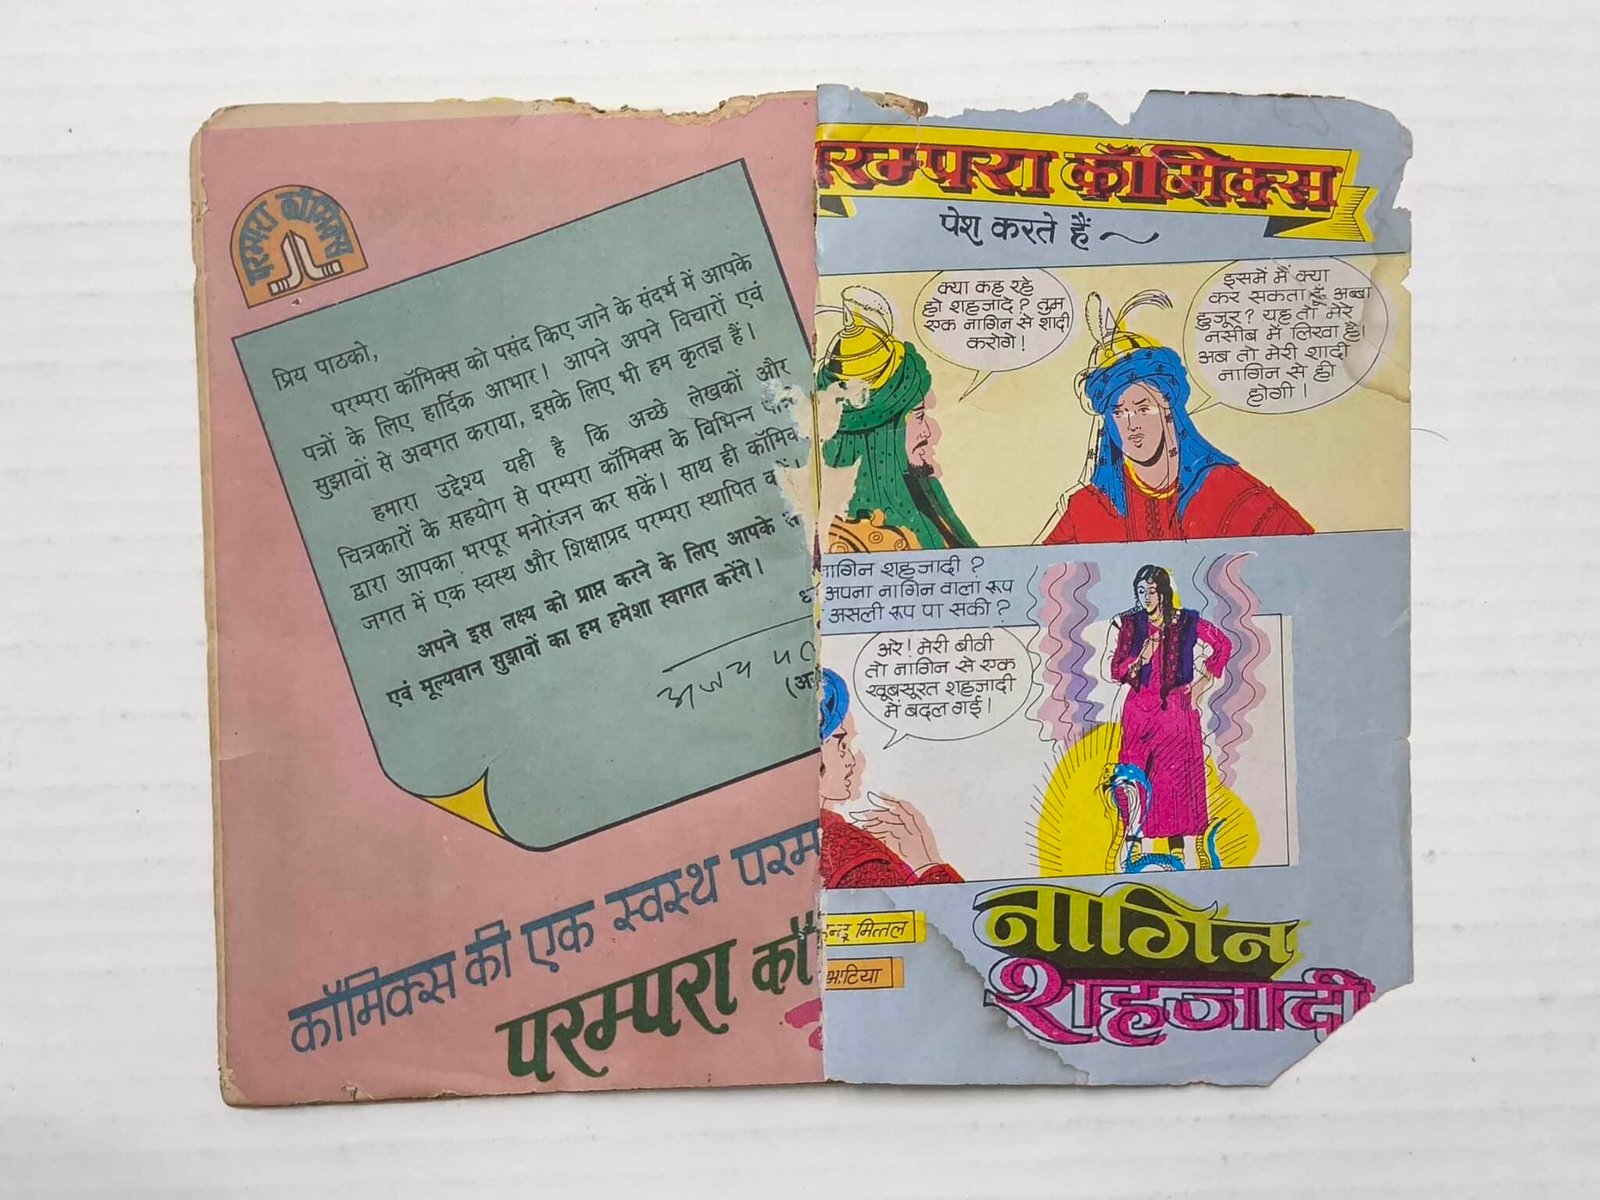 परम्परा कॉमिक्स
प्रिय पाठको,
परम्परा कॉमिक्स को पसंद किए जाने के संदर्भ में आपके
पत्रों के लिए हार्दिक आभार। आपने अपने विचारों एवं
सुझावों से अवगत कराया, इसके लिए भी हम कृतज्ञ हैं।
हमारा उद्देश्य यही है कि अच्छे लेखकों और
चित्रकारों के सहयोग से परम्परा कॉमिक्स के विभिन्न
द्वारा आपका भरपूर मनोरंजन कर सकें। साथ ही कॉमिक
जगत में एक स्वस्थ और शिक्षाप्रद परम्परा स्थापित
अपने इस लक्ष्य को प्राप्त करने के लिए आपके
एवं मूल्यवान सुझावों का हम हमेशा स्वागत करेंगे।
अजय
कॉमिक्स की एक स्वस्थ परम
परम्परा कॉ
रम्परा कॉमिक्स
पेश करते हैं
क्या कह रहे
हो शहजादे? तुम
एक नागिन से शादी
करोगे!
इसमें मैं क्या
कर सकता हूँ अब्बा
हुजूर? यह तो मेरे
नसीब में लिखा है!
अब तो मेरी शादी
नागिन से ही
होगी।
नागिन शहजादी?
अपना नागिन वाला रूप
असली रूप पा सकी?
अरे! मेरी बीवी
तो नागिन से एक
खूबसूरत शहजादी
में बदल गई।
मित्तल
भाटिया
नागिन
शहजादी